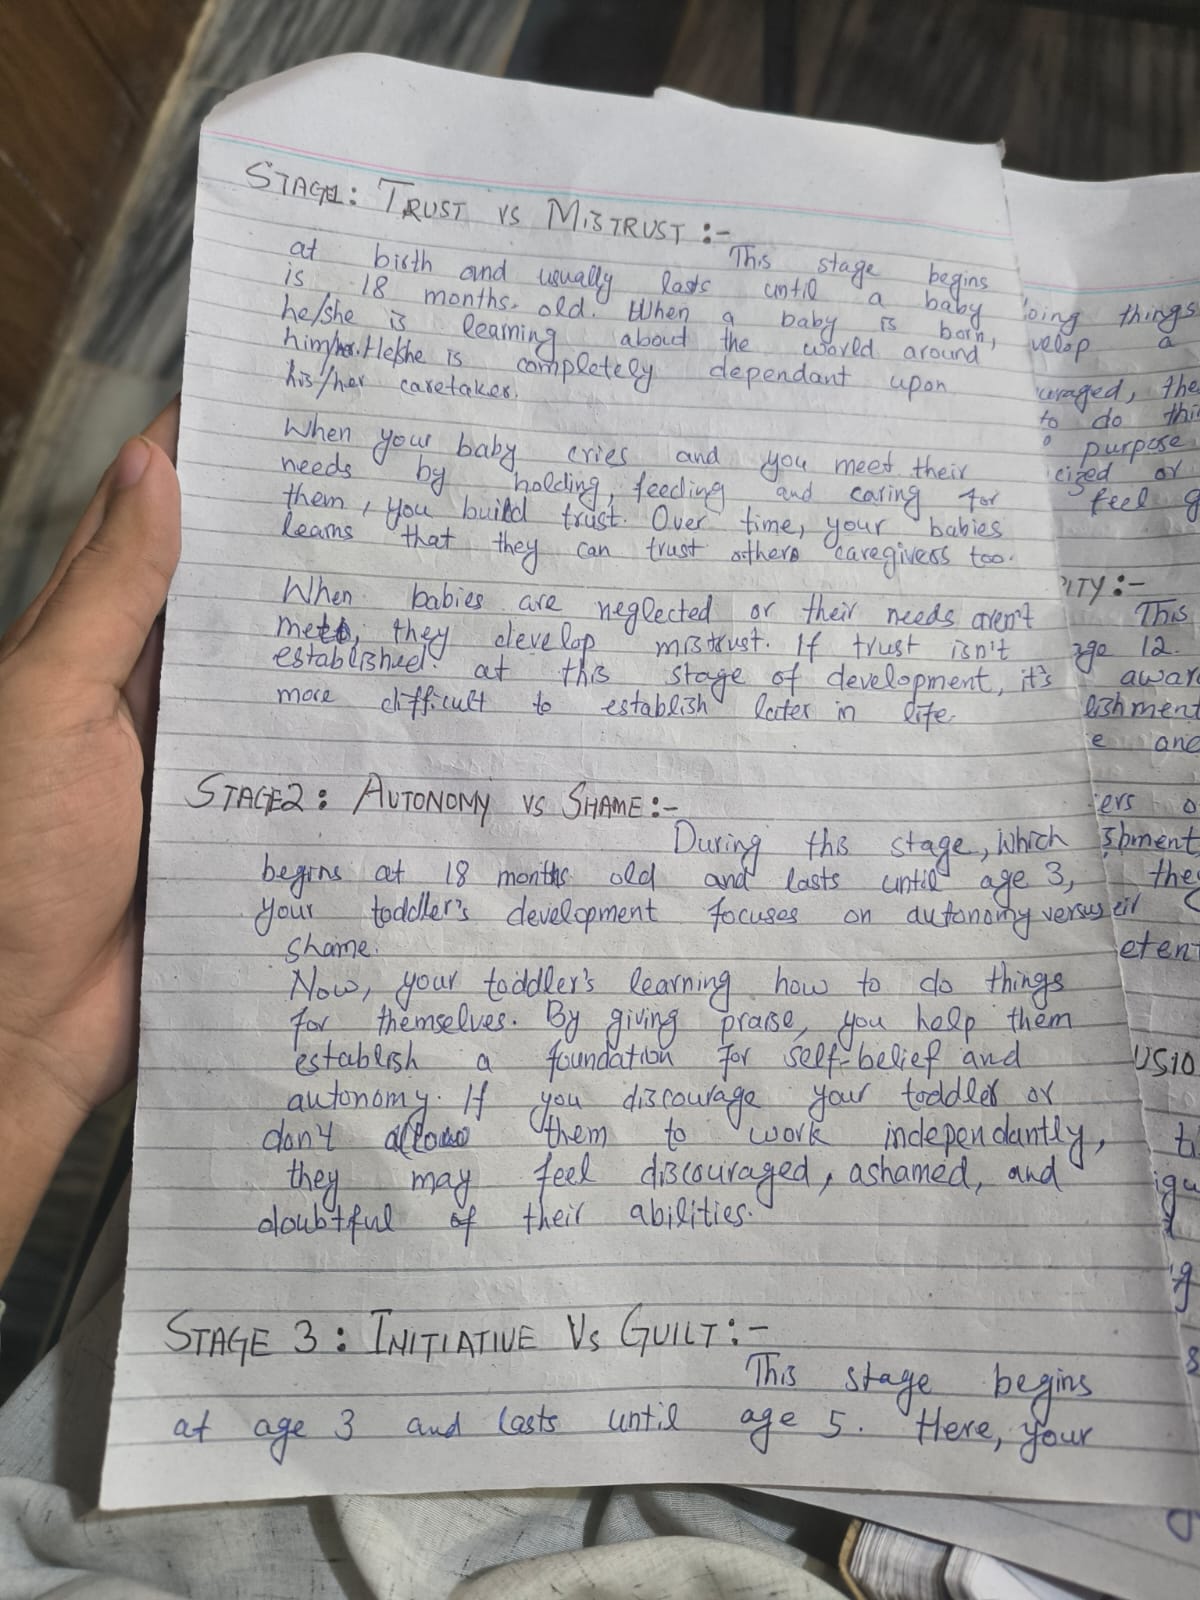 STAGE1: TRUST VS MISTRUST :-
This stage begins
at birth and usually lasts until a baby
is 18 months old. When a baby is born,
he/she is learning about the world around
him/her. He/she is completely dependant upon
his/her caretaker.
When your baby cries and you meet their
needs by holding, feeding and caring for
them, you build trust. Over time, your babies
learns that they can trust others caregivers too.
When babies are neglected or their needs aren't
met, they develop mistrust. If trust isn't
established at this stage of development, it's
more difficult to establish later in life.
STAGE2: AUTONOMY VS SHAME:-
During this stage, which
begins at 18 months old and lasts until age 3,
your toddler's development focuses on autonomy versus
shame.
Now, your toddler's learning how to do things
for themselves. By giving praise, you help them
establish a foundation for self-belief and
autonomy. If you discourage your toddler or
don't allow them to work independantly,
they may feel discouraged, ashamed, and
doubtful of their abilities.
STAGE 3: INITIATIVE VS GUILT:-
This stage begins
at age 3 and lasts until age 5. Here, your
things
a
the
to do
purpose
or
feel
This
age 12.